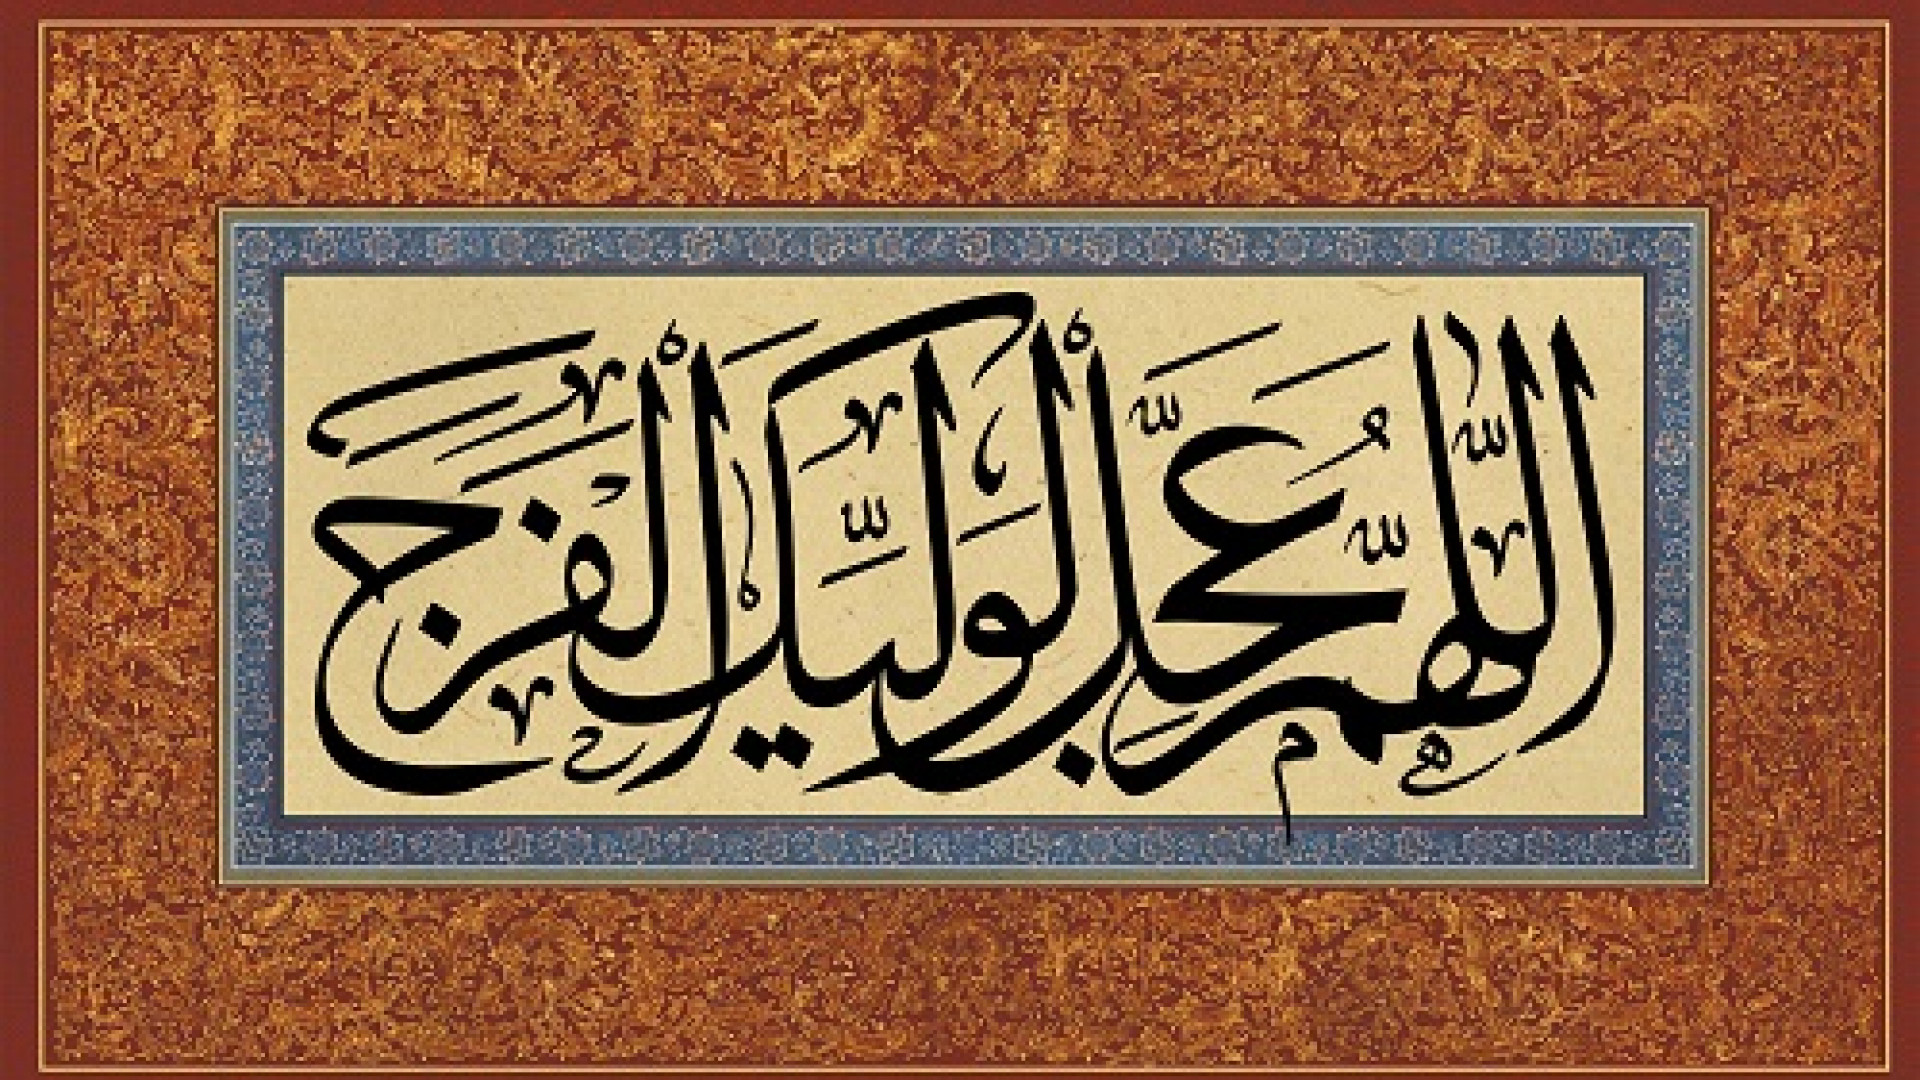 اللّٰهُمَّ عَجِّلْ لِوَلِيِّكَ الْفَرَجَ